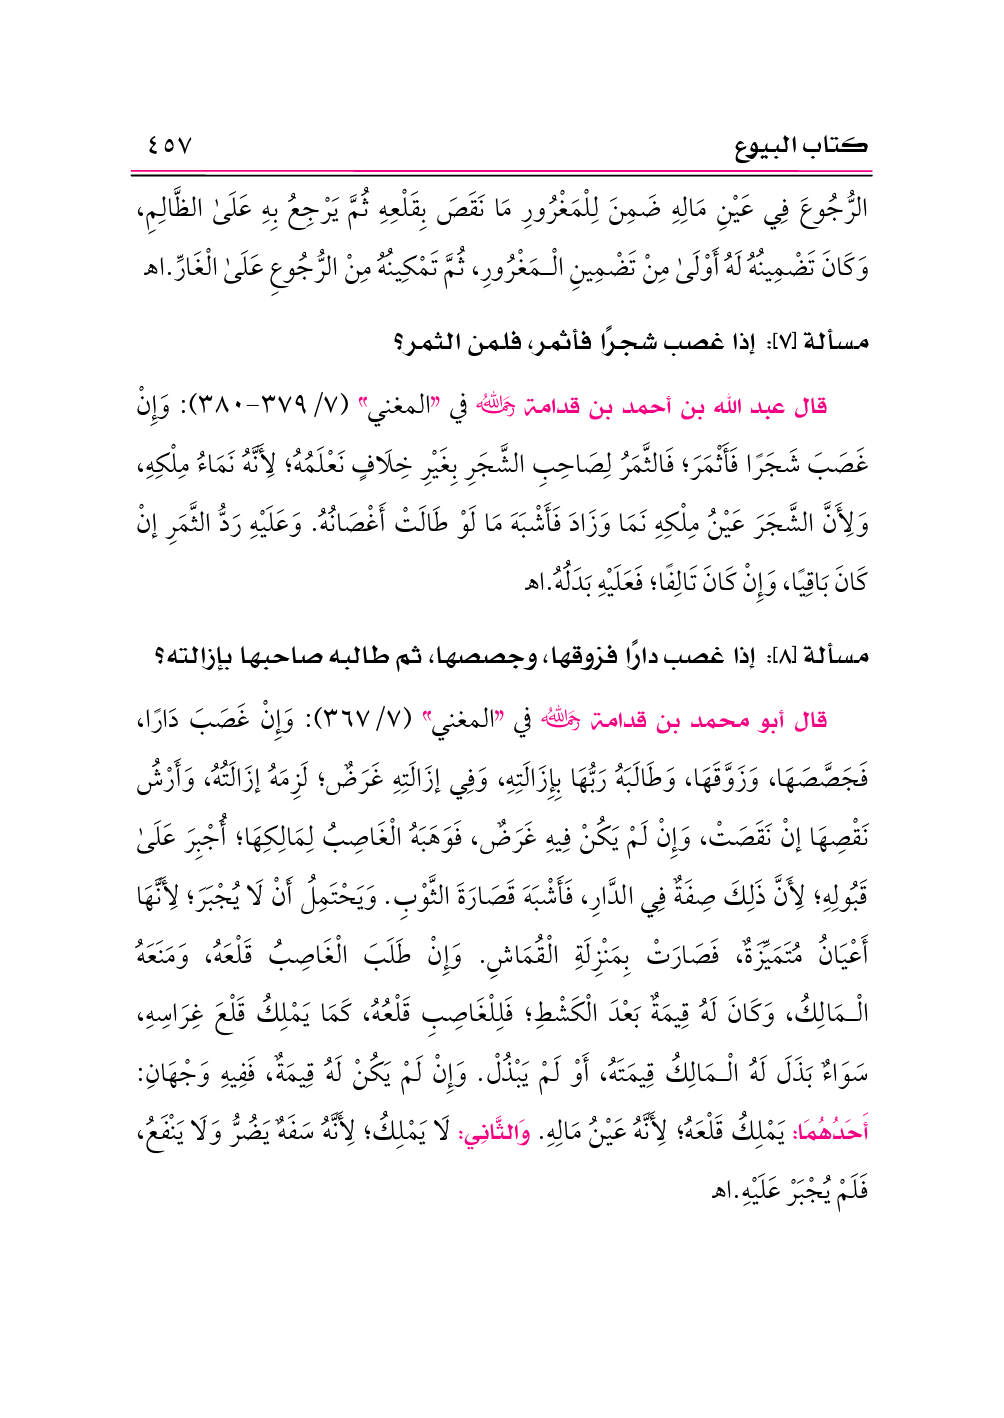 كتاب البيوع ٤٥٧
الرُّجُوعَ فِي عَيْنِ مَالِهِ ضَمِنَ لِلْمَغْرُورِ مَا نَقَصَ بِقَلْعِهِ ثُمَّ يَرْجِعُ بِهِ عَلَىٰ الظَّالِمِ،
وَكَانَ تَضْمِينُهُ لَهُ أَوْلَىٰ مِنْ تَضْمِينِ الْـمَغْرُورِ، ثُمَّ تَمْكِينُهُ مِنْ الرُّجُوعِ عَلَىٰ الْغَارِّ.اهـ
مسألة [٧]: إذا غصب شجرًا فأثمر، فلمن الثمر؟
قال عبد الله بن أحمد بن قدامة رحمه الله في "المغني" (٧/ ٣٧٩-٣٨٠): وَإِنْ
غَصَبَ شَجَرًا فَأَثْمَرَ؛ فَالثَّمَرُ لِصَاحِبِ الشَّجَرِ بِغَيْرِ خِلَافٍ نَعْلَمُهُ؛ لِأَنَّهُ نَمَاءُ مِلْكِهِ،
وَلِأَنَّ الشَّجَرَ عَيْنُ مِلْكِهِ نَمَا وَزَادَ فَأَشْبَهَ مَا لَوْ طَالَتْ أَغْصَانُهُ. وَعَلَيْهِ رَدُّ الثَّمَرِ إنْ
كَانَ بَاقِيًا، وَإِنْ كَانَ تَالِفًا؛ فَعَلَيْهِ بَدَلُهُ.اهـ
مسألة [٨]: إذا غصب دارًا فزوقها، وجصصها، ثم طالبه صاحبها بإزالته؟
قال أبو محمد بن قدامة رحمه الله في "المغني" (٧/ ٣٦٧): وَإِنْ غَصَبَ دَارًا،
فَجَصَّصَهَا، وَزَوَّقَهَا، وَطَالَبَهُ رَبُّهَا بِإِزَالَتِهِ، وَفِي إزَالَتِهِ غَرَضٌ؛ لَزِمَهُ إزَالَتُهُ، وَأَرْشُ
نَقْصِهَا إنْ نَقَصَتْ، وَإِنْ لَمْ يَكُنْ فِيهِ غَرَضٌ، فَوَهَبَهُ الْغَاصِبُ لِمَالِكِهَا؛ أُجْبِرَ عَلَىٰ
قَبُولِهِ؛ لِأَنَّ ذَلِكَ صِفَةٌ فِي الدَّارِ، فَأَشْبَهَ قَصَارَةَ الثَّوْبِ. وَيَحْتَمِلُ أَنْ لَا يُجْبَرَ؛ لِأَنَّهَا
أَعْيَانٌ مُتَمَيِّزَةٌ، فَصَارَتْ بِمَنْزِلَةِ الْقُمَاشِ. وَإِنْ طَلَبَ الْغَاصِبُ قَلْعَهُ، وَمَنَعَهُ
الْـمَالِكُ، وَكَانَ لَهُ قِيمَةٌ بَعْدَ الْكَشْطِ؛ فَلِلْغَاصِبِ قَلْعُهُ، كَمَا يَمْلِكُ قَلْعَ غِرَاسِهِ،
سَوَاءٌ بَذَلَ لَهُ الْـمَالِكُ قِيمَتَهُ، أَوْ لَمْ يَبْذُلْ. وَإِنْ لَمْ يَكُنْ لَهُ قِيمَةٌ، فَفِيهِ وَجْهَانِ:
أَحَدُهُمَا: يَمْلِكُ قَلْعَهُ؛ لِأَنَّهُ عَيْنُ مَالِهِ. وَالثَّانِي: لَا يَمْلِكُ؛ لِأَنَّهُ سَفَهٌ يَضُرُّ وَلَا يَنْفَعُ،
فَلَمْ يُجْبَرْ عَلَيْهِ.اهـ